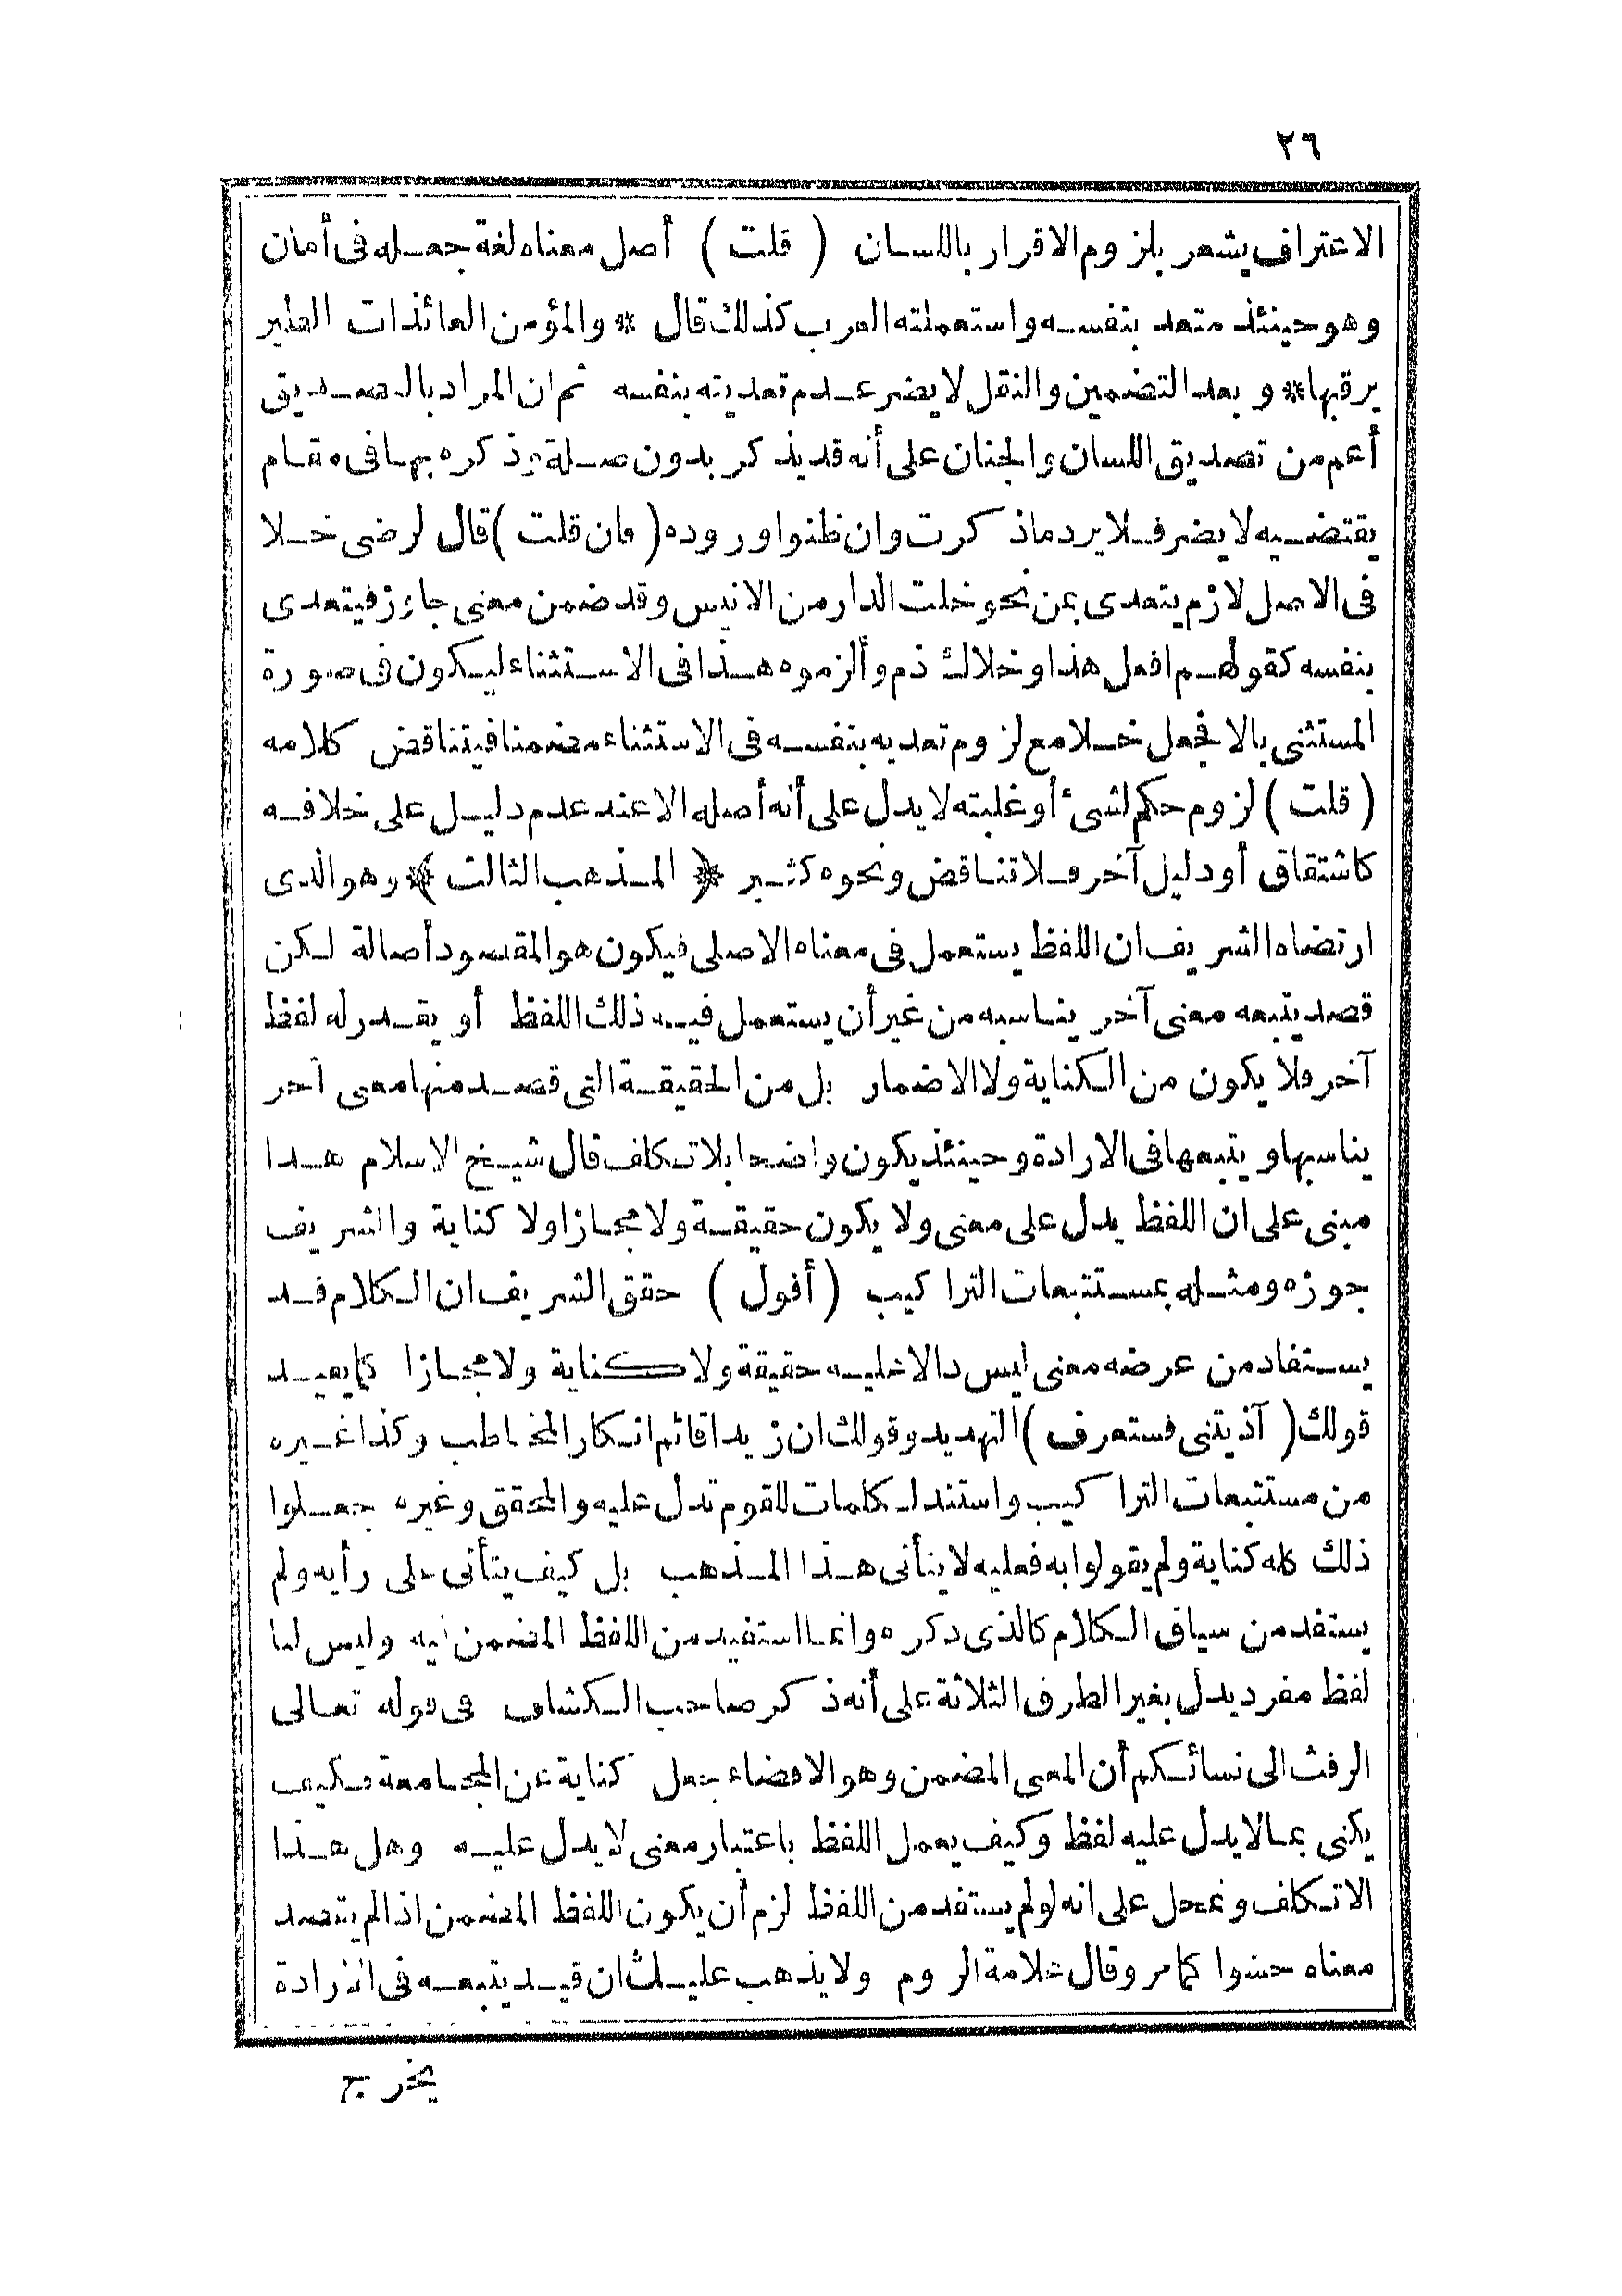 ٢٦
الاعتراف يشعر بلزوم الاقرار باللسان ( قلت ) أصل معناه لغة جعله فى أمان
وهو حينئذ متعد بنفسه واستعملته العرب كذلك قال * والمؤمن العائذات الطير
يرقبها * وبعد التضمين والنقل لا يضر عدم تعديته بنفسه ثم ان المراد بالتصديق
أعم من تصديق اللسان والجنان على أنه قد يذكر بدون صلة وذكره بها فى مقام
يقتضيه لا يضر فلا يرد ماذكرت وان ظنوا وروده ( فان قلت ) قال الرضى خلا
فى الاصل لازم يتعدى بمن نحو خلت الدار من الانيس وقد ضمن معنى جاوز فيتعدى
بنفسه كقولهم افعل هذا وخلاك ذم وألزموه هذا فى الاستثناء ليكون فى صورة
المستثنى بالا فجعل خلا مع لزوم تعديه بنفسه فى الاستثناء مضمنا فيتناقض كلامه
( قلت ) لزوم حكم لشئ أو غلبته لا يدل على أنه أصله الا عند عدم دليل على خلافه
كاشتقاق أو دليل آخر فلا تناقض ونحوه كثير ﴿ المذهب الثالث ﴾ وهو الذى
ارتضاه الشريف ان اللفظ يستعمل فى معناه الاصلى فيكون هو المقصود أصالة لكن
قصد يتبعه معنى آخر يناسبه من غير أن يستعمل فيه ذلك اللفظ أو يقدر له لفظ
آخر فلا يكون من الكناية ولا الاضمار بل من الحقيقة التى قصد منها معنى آخر
يناسبها ويتبعها فى الارادة وحينئذ يكون واضحا بلا تكلف قال شيخ الاسلام هذا
مبنى على ان اللفظ يدل على معنى ولا يكون حقيقة ولا مجازا ولا كناية والشريف
جوزه ومثله بمستتبعات التراكيب ( أقول ) حقق الشريف ان الكلام قد
يستفاد من عرضه معنى ليس دالا عليه حقيقة ولا كناية ولا مجازا كما يفيد
قولك ( آذيتنى فستعرف ) التهديد وقولك ان زيدا قائم انكار المخاطب وكذا غيره
من مستتبعات التراكيب واستند لكلمات للقوم تدل عليه والمحقق وغيره جعلوا
ذلك كله كناية ولم يقولوا به فعليه لا يتأتى هذا المذهب بل كيف يتأتى على رأيه ولم
يستفد من سياق الكلام كالذى ذكره وانما استفيد من اللفظ المضمن فيه وليس لنا
لفظ مفرد يدل بغير الطرق الثلاثة على أنه ذكر صاحب الكشاف فى قوله تعالى
الرفث الى نسائكم أن المعنى المضمن وهو الافضاء جعل كناية عن المجامعة فكيف
يكنى بما لا يدل عليه لفظ وكيف يعمل اللفظ باعتبار معنى لا يدل عليه وهل هذا
الا تكلف وتمحل على انه لو لم يستفد من اللفظ لزم أن يكون اللفظ المضمن اذا لم يقصد
معناه حشوا كما مر وقال علامة الروم ولا يذهب عليك ان قيد يتبعه فى الارادة
يخرج